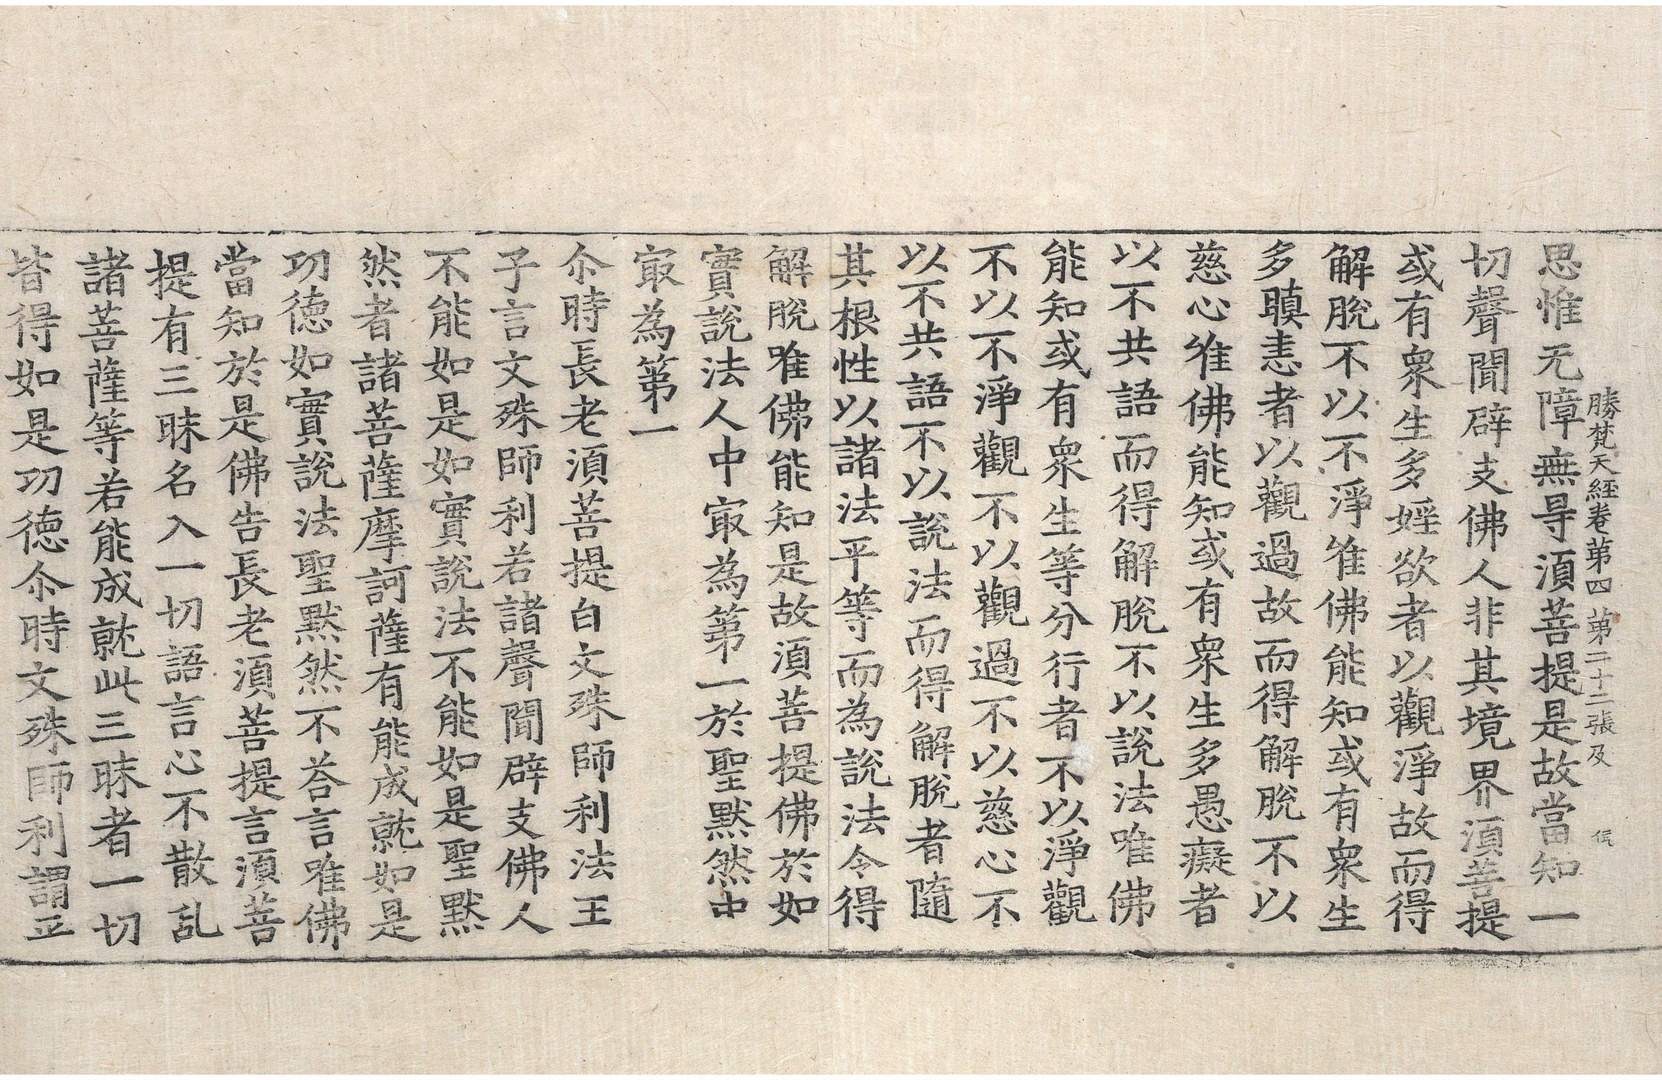 勝梵天經卷第四　第二十二張及
思惟无障無㝵湏菩提是故當知一
切聲聞辟支佛人非其境界湏菩提
或有衆生多婬欲者以觀淨故而得
解脫不以不淨唯佛能知或有衆生
多瞋恚者以觀過故而得解脫不以
慈心唯佛能知或有衆生多愚癡者
以不共語而得解脫不以說法唯佛
能知或有衆生等分行者不以淨觀
不以不淨觀不以觀過不以慈心不
以不共語不以說法而得解脫者隨
其根性以諸法平等而為說法令得
解脫唯佛能知是故湏菩提佛於如
實說法人中㝡為第一於聖默然中
㝡為第一
尒時長老湏菩提白文殊師利法王
子言文殊師利若諸聲聞辟支佛人
不能如是如實說法不能如是聖默
然者諸菩薩摩訶薩有能成就如是
功德如實說法聖默然不荅言唯佛
當知於是佛告長老湏菩提言湏菩
提有三昧名入一切語言心不散乱
諸菩薩等若能成就此三昧者一切
皆得如是功德尒時文殊師利謂平